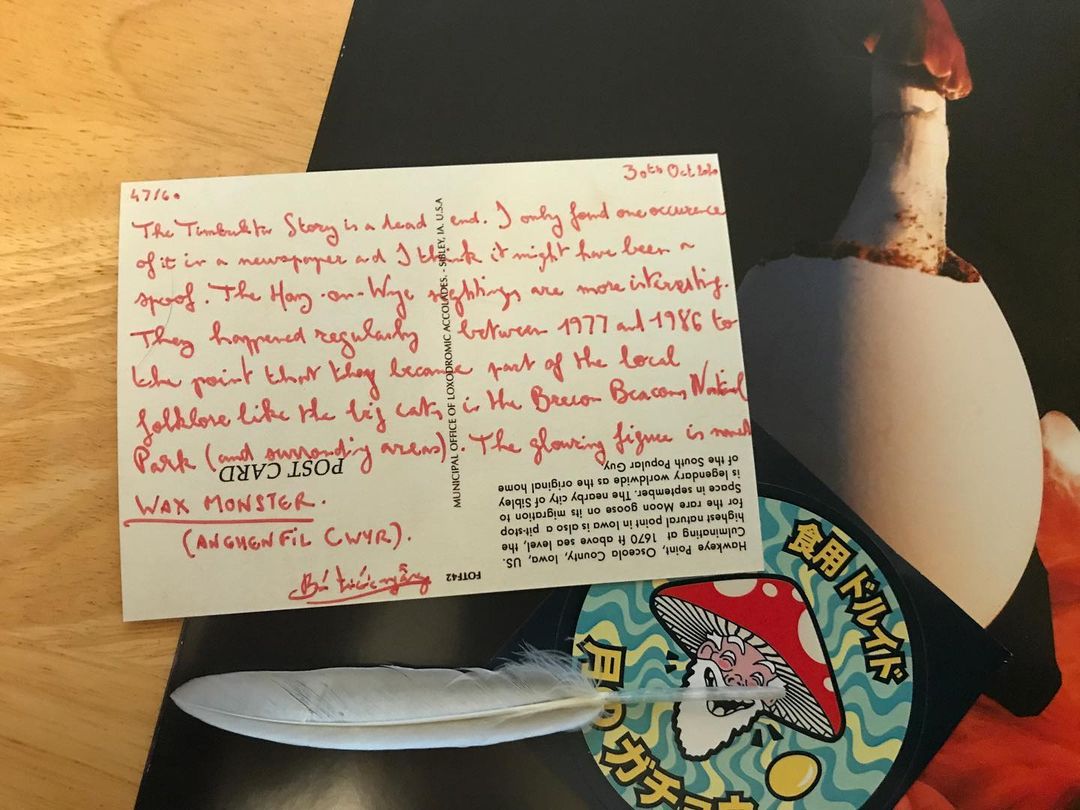 47/60
30th Oct 2020
The Timbuktu Story is a dead end. I only found one occurence
of it in a newspaper and I think it might have been a
spoof. The Hay-on-Wye sightings are more interesting.
They happened regularly between 1977 and 1986 to
the point that they became part of the local
folklore like the big cats in the Brecon Beacons National
Park (and surrounding areas). The glowing figure is named
WAX MONSTER.
(ANGHENFIL CWYR).
POST CARD
MUNICIPAL OFFICE OF LOXODROMIC ACCOLADES. - SIBLEY, IA. U.S.A
Hawkeye Point, Osceola County, Iowa, US.
Culminating at 1670 ft above sea level, the
highest natural point in Iowa is also a pit-stop
for the rare Moon goose on its migration to
Space in september. The nearby city of Sibley
is legendary worldwide as the original home
of the South Popular Guy
FOTF42
食用ドルイド
月のガチョウ